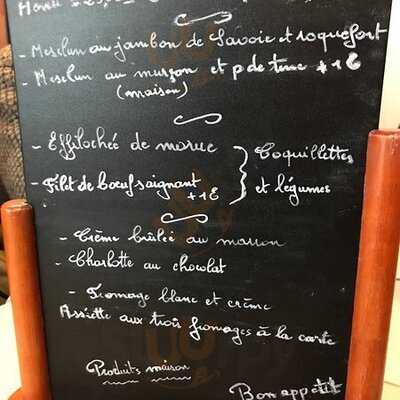 - Mesclun au jambon de Savoie et roquefort
- Mesclun au museau et p de terre + 1 €
(maison)
- Effilochée de morue
- Filet de bœuf saignant + 1 €
Coquillettes
et légumes
- Crème brûlée au marron
- Charlotte au chocolat
- Fromage blanc et crème
Assiette aux trois fromages à la carte
Produits maison
Bon appétit